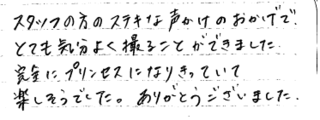 スタッフの方のステキな声かけのおかげで、
とても気分よく撮ることができました。
完全にプリンセスになりきっていて
楽しそうでした。ありがとうございました。